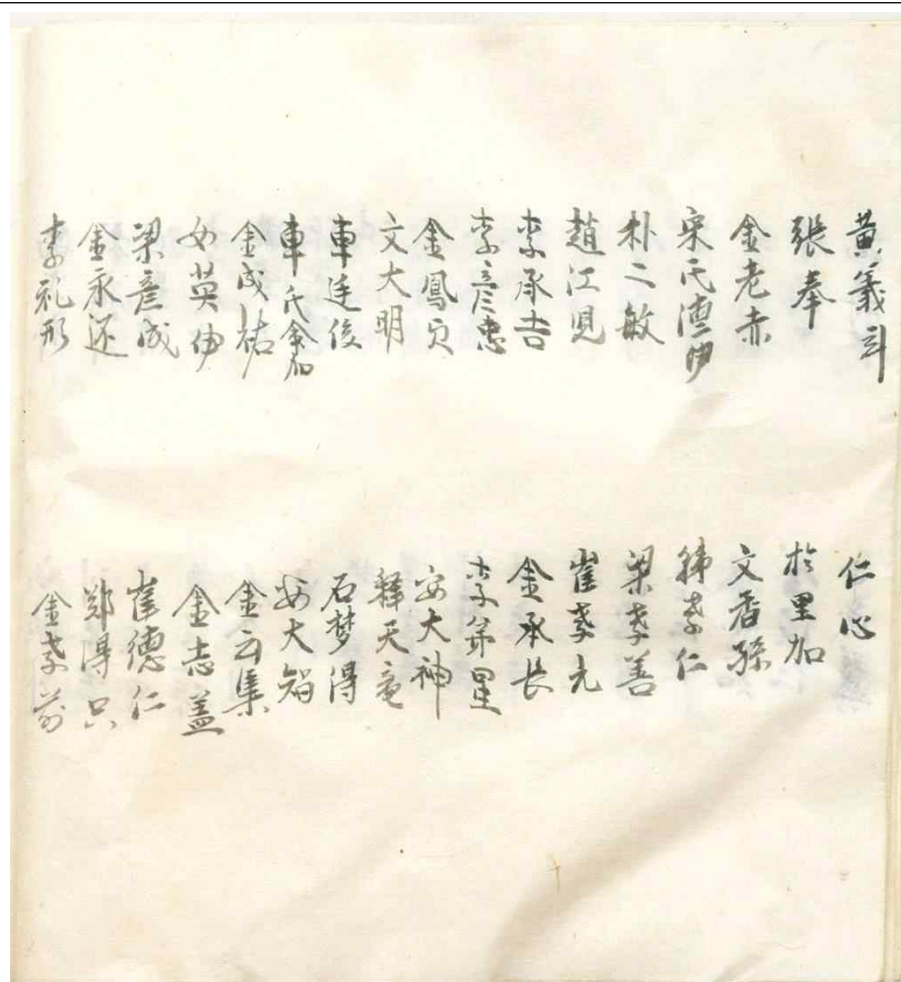 黄義斗
張奉
金老赤
宋氏
朴二敏
趙江見
李承吉
李彦忠
金鳳
文大明
車廷俊
車氏
金成祐
女英伊
梁彦成
金永还
李礼形
仁心
於里加
文香孫
孝仁
梁孝善
崔孝元
金承長
李弟里
安大神
釋天竜
石梦得
安大
金云集
金志盖
崔德仁
鄭得只
金孝